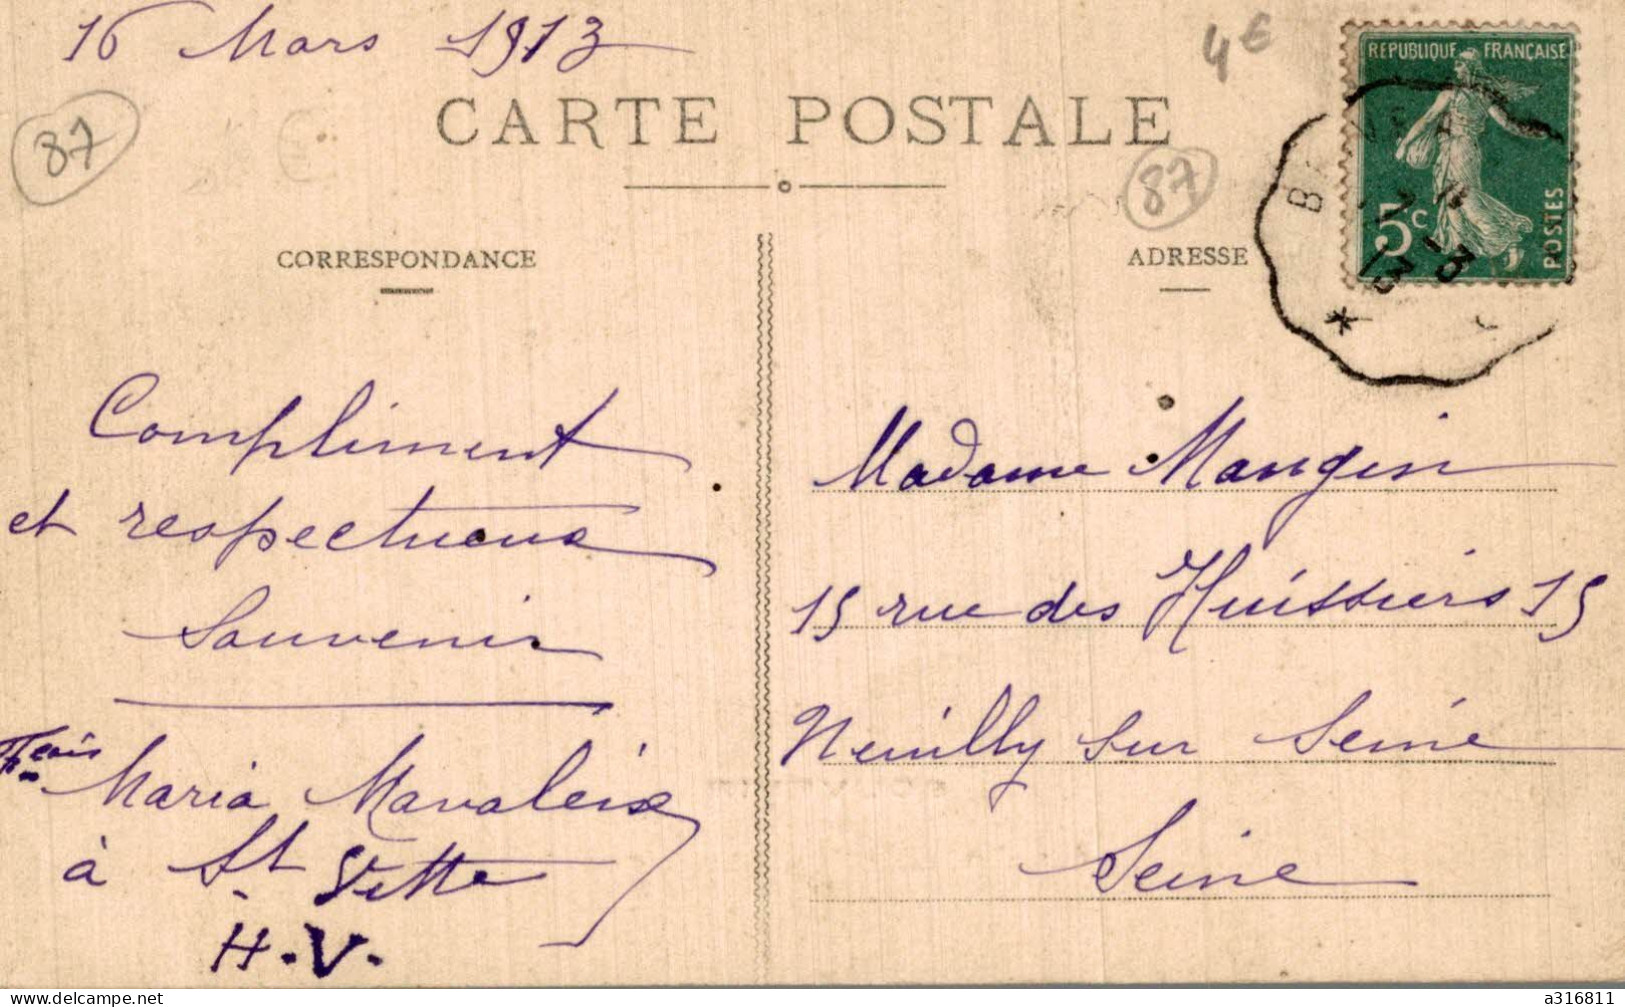 16 Mars 1913
4€
87
CARTE POSTALE
87
RÉPUBLIQUE FRANÇAISE
5c
POSTES
17
-3
13
CORRESPONDANCE
ADRESSE
Compliment
et respectueux
Souvenir
Maria
à St Vitte
H.V.
Madame Mangin
15 rue des Huissiers 15
Neuilly sur Seine
Seine
www.delcampe.net
a316811